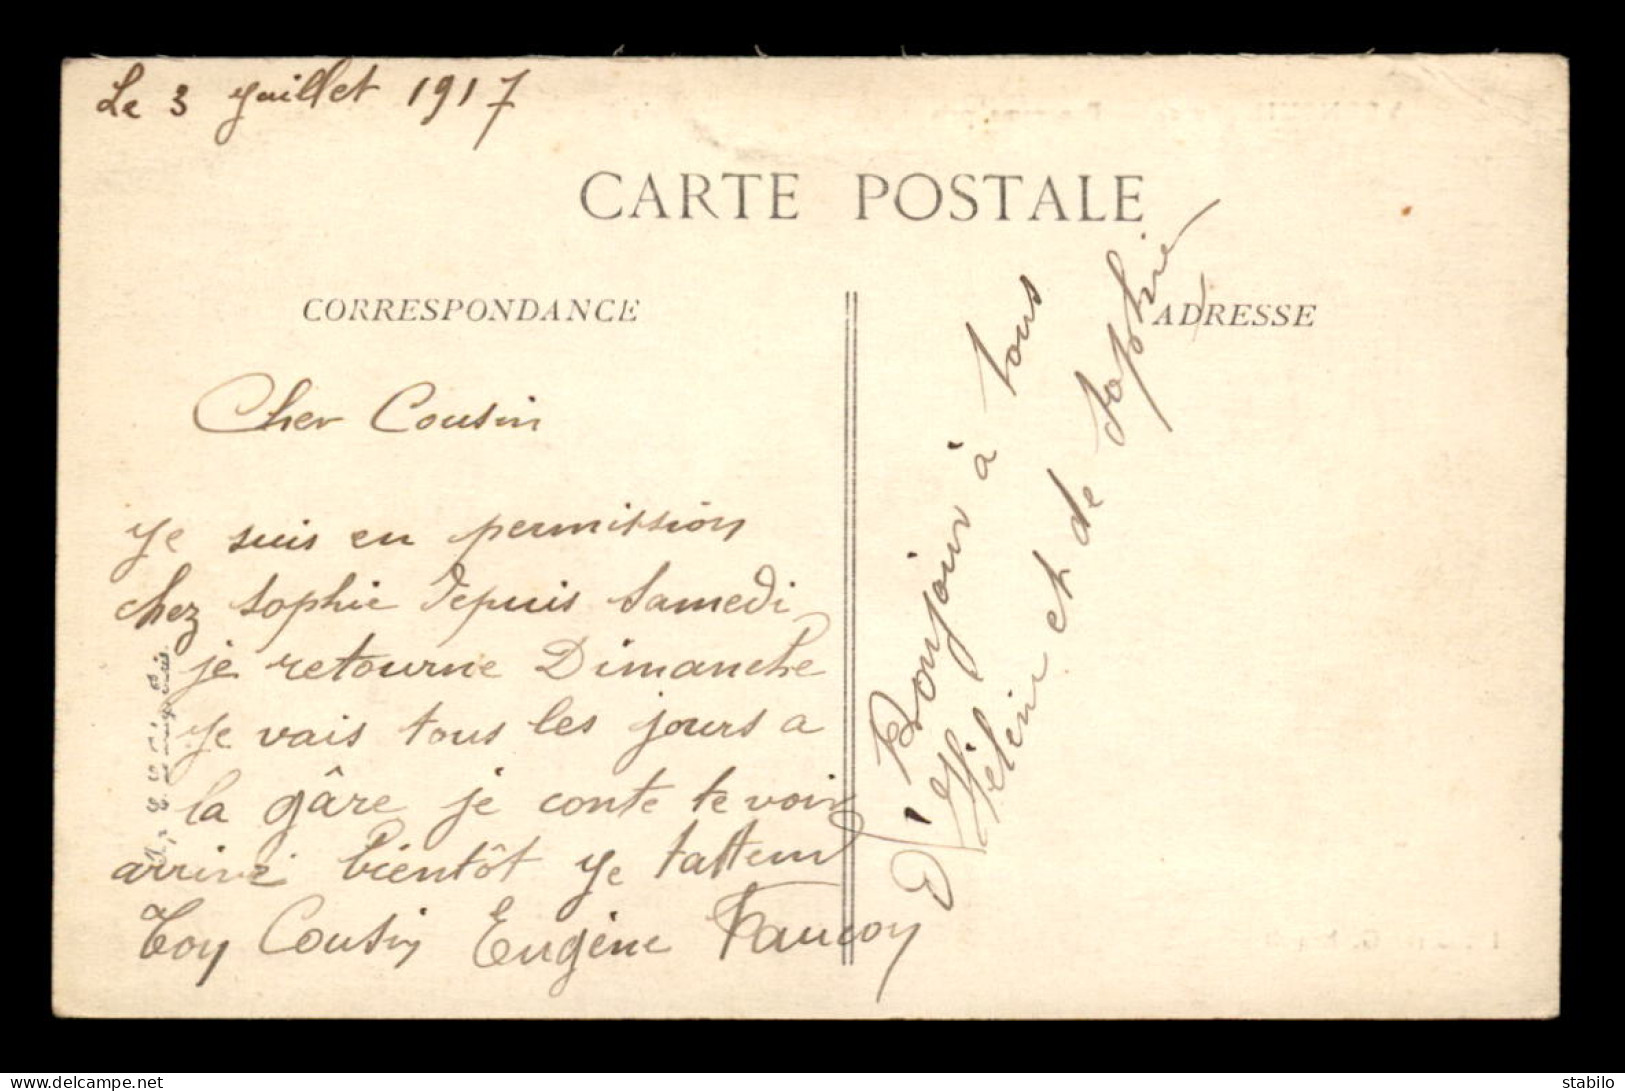 Le 3 Juillet 1917
CARTE POSTALE
CORRESPONDANCE
ADRESSE
Cher Cousin
Je suis en permission
chez Sophie depuis Samedi
je retourne Dimanche
Je vais tous les jours a
la gâre je conte te voir
arrivé bientôt Je tattend
Toy Cousin Eugène
Bonjour à tous
et de Sophie
delcampe.net
stabilo